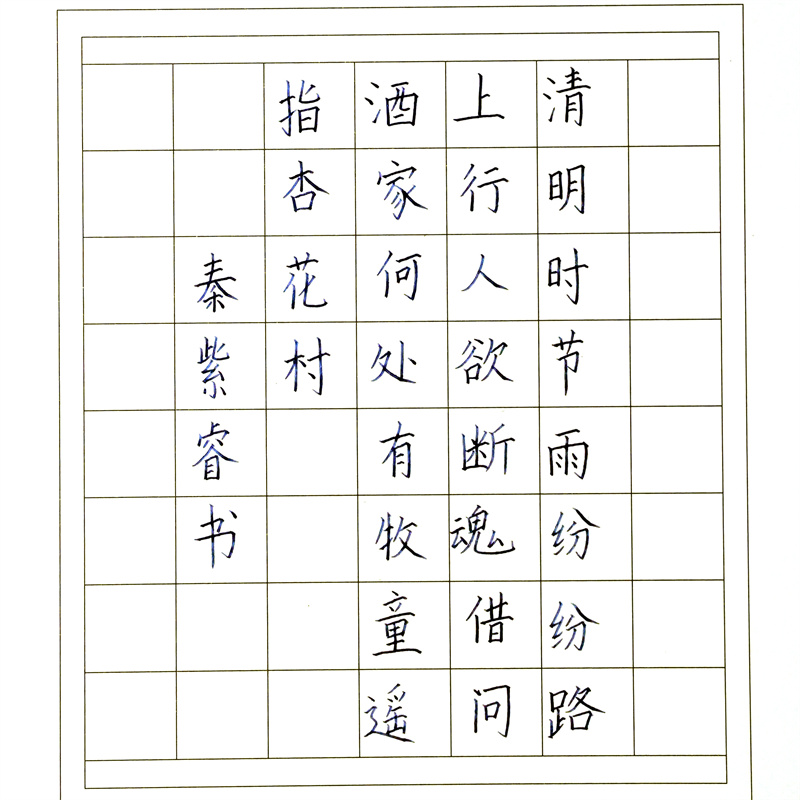 清明时节雨纷纷路
上行人欲断魂借问
酒家何处有牧童遥
指杏花村
秦紫睿书